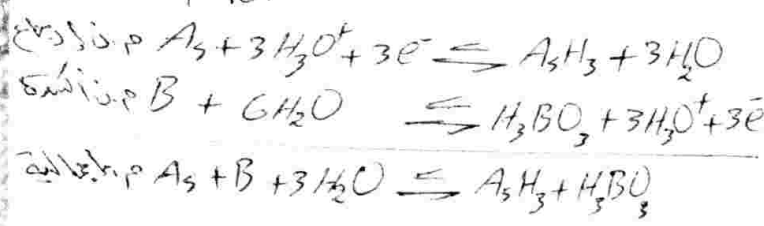 م.ن.إرجاع As + 3H₃O⁺ + 3e⁻ ⇌ AsH₃ + 3H₂O
م.ن.أكسدة B + 6H₂O ⇌ H₃BO₃ + 3H₃O⁺ + 3e⁻
م.إجمالية As + B + 3H₂O ⇌ AsH₃ + H₃BO₃